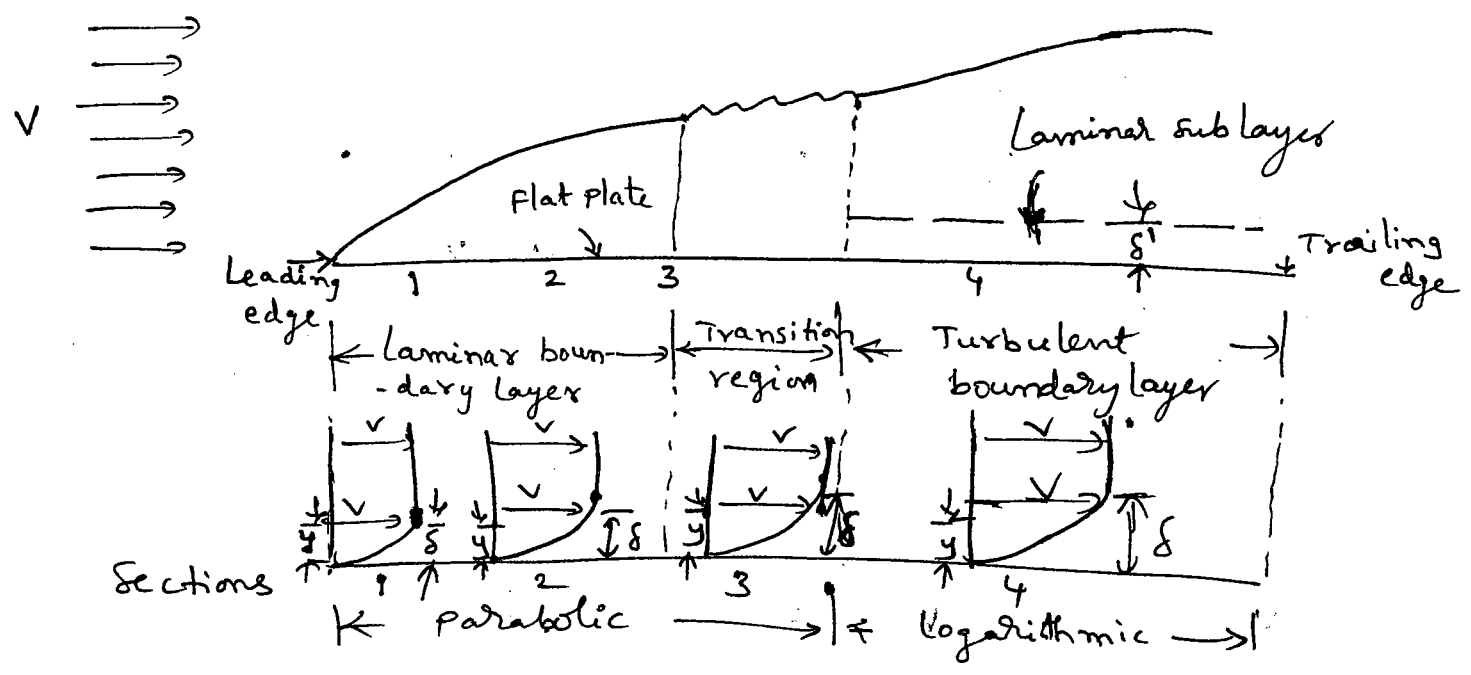 V
Laminar sublayer
Flat plate
δ'
Leading edge
Trailing edge
1 2 3 4
Laminar boun-
-dary layer
Transition
region
Turbulent
boundary layer
V V V V
V V V V
y δ y δ y δ y δ
Sections 1 2 3 4
Parabolic
logarithmic